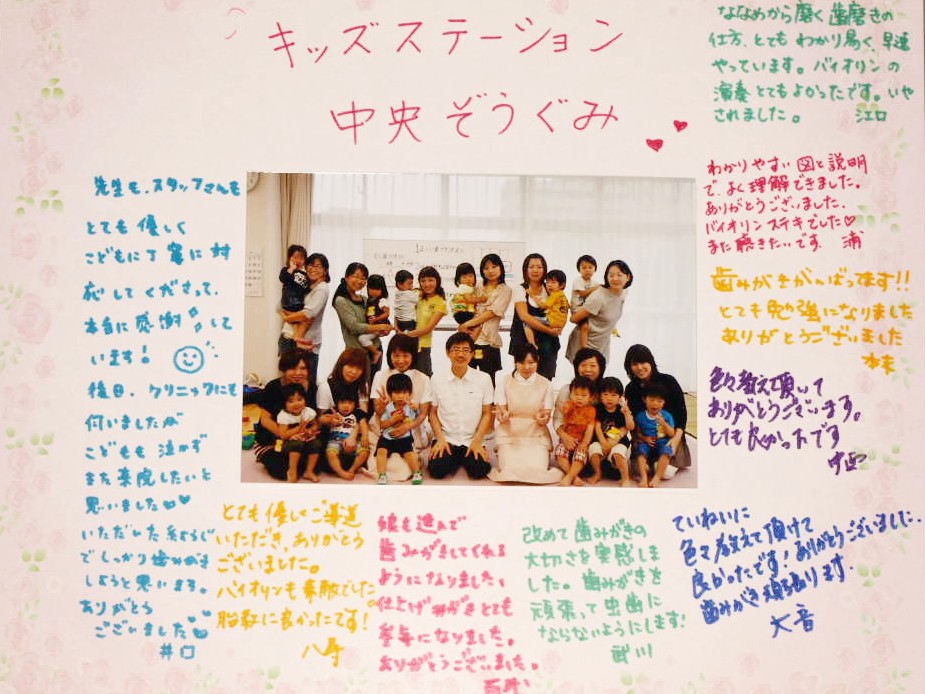 キッズステーション
中央ぞうぐみ
ななめから磨く歯磨きの
仕方、とてもわかり易く、早速
やっています。バイオリンの
演奏とてもよかったです。いや
されました。 江口
わかりやすい図と説明
で、よく理解できました。
ありがとうございました。
バイオリンステキでした♡
また聴きたいです。 浦
歯みがきがんばってます!!
とても勉強になりました
ありがとうございました
色々教えて頂いて
ありがとうございます。
とても良かったです
中西
先生も、スタッフさんも
とても優しく
こどもに丁寧に対
応してくださって、
本当に感謝して
います!
後日、クリニックにも
伺いましたが
こどもも泣かず
また来院したいと
思いました
いただいた
でしっかり歯みがき
しようと思います。
ありがとう
ございました
井口
とても優しくご導
いただき、ありがとう
ございました。
バイオリンも素敵でした。
胎教に良かったです!
娘も進んで
歯みがきしてくれる
ようになりました。
仕上げ磨きとても
参考になりました。
ありがとうございました。
改めて歯みがきの
大切さを実感しま
した。歯みがきを
頑張って虫歯に
ならないようにします!
武川
ていねいに
色々教えて頂けて
良かったです!ありがとうございました。
歯みがき頑張ります。
大音